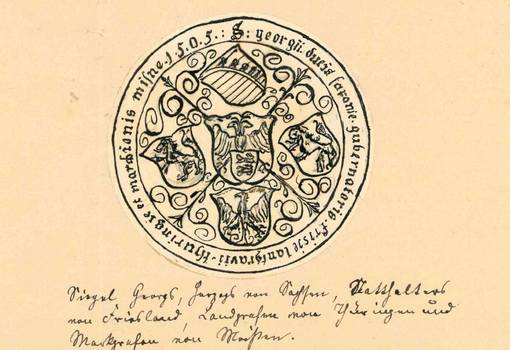 S: georgii. ducis saxonie. gubernatoris. frisie langravii. thuringie et marchionis misne. 1.5.0.5.:
Siegel Georgs, Herzogs von Sachsen, Statthalters
von Friesland, Landgrafen von Thüringen und
Markgrafen von Meißen.